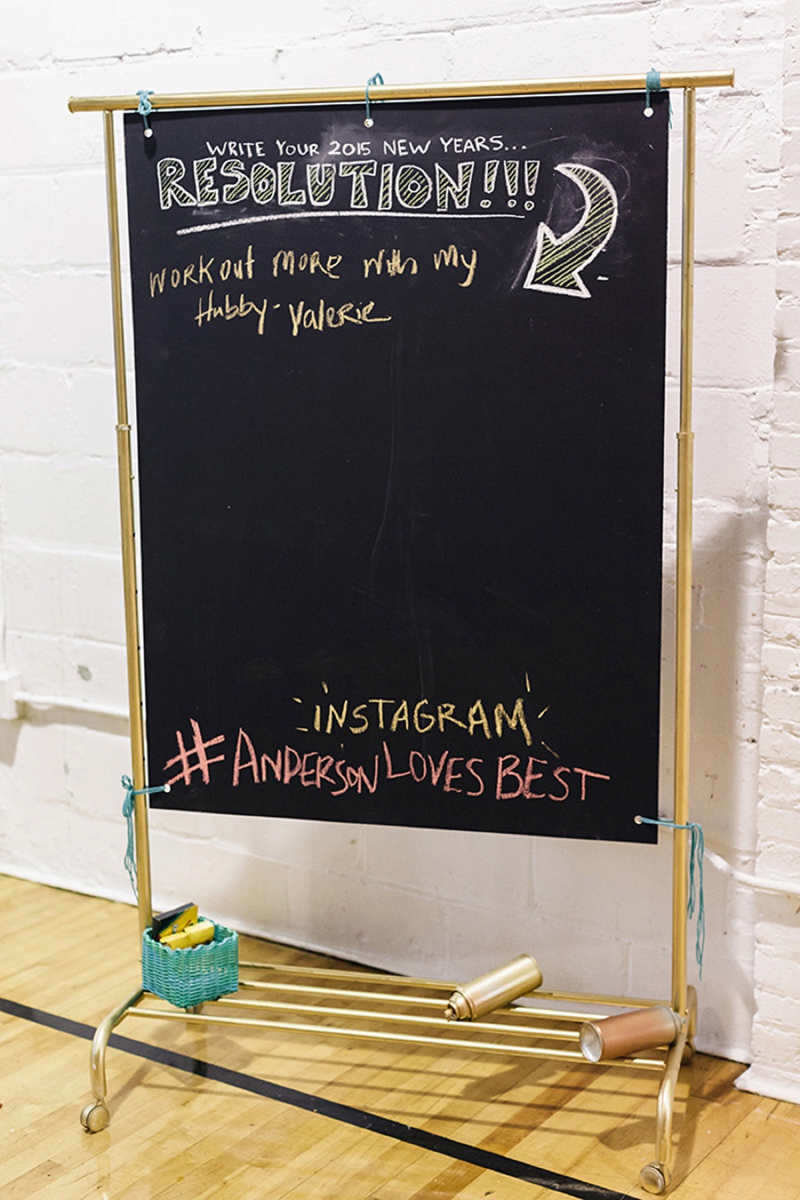 WRITE YOUR 2015 NEW YEARS...
RESOLUTION!!!
WORKOUT MORE With My
Hubby - Valerie
INSTAGRAM
#ANDERSONLOVESBEST